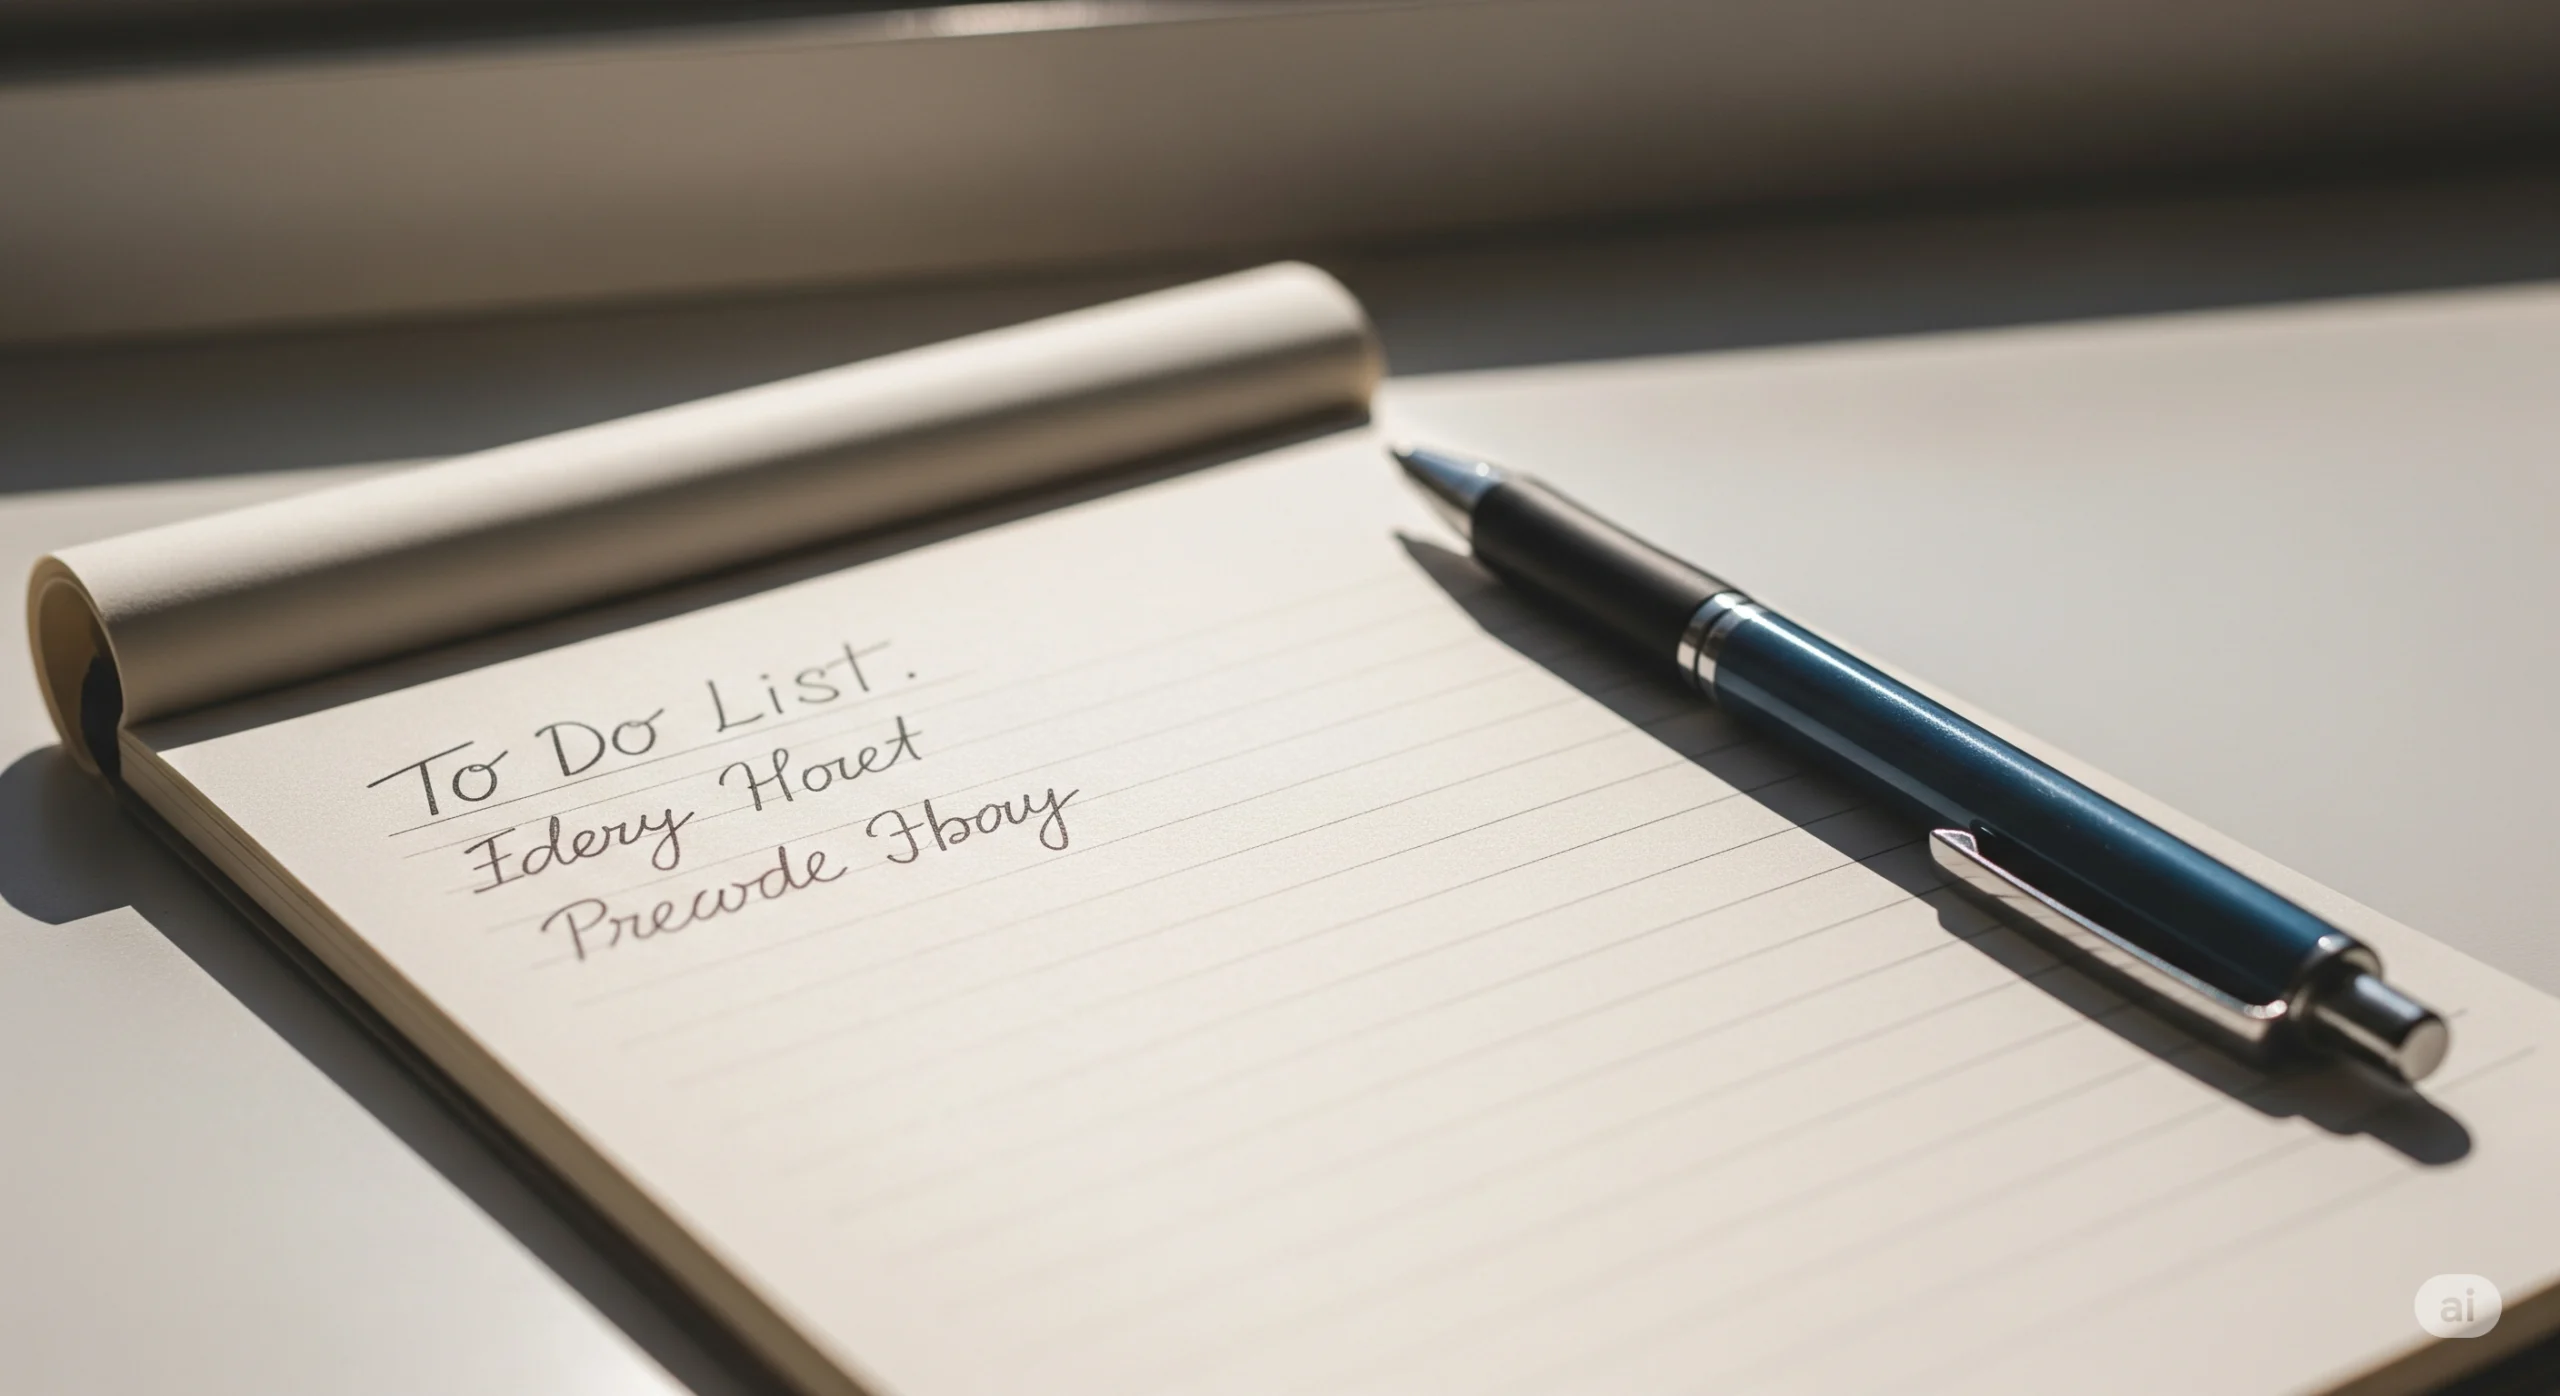 To Do List.
Idery Horet
Precvde Fbory
ai